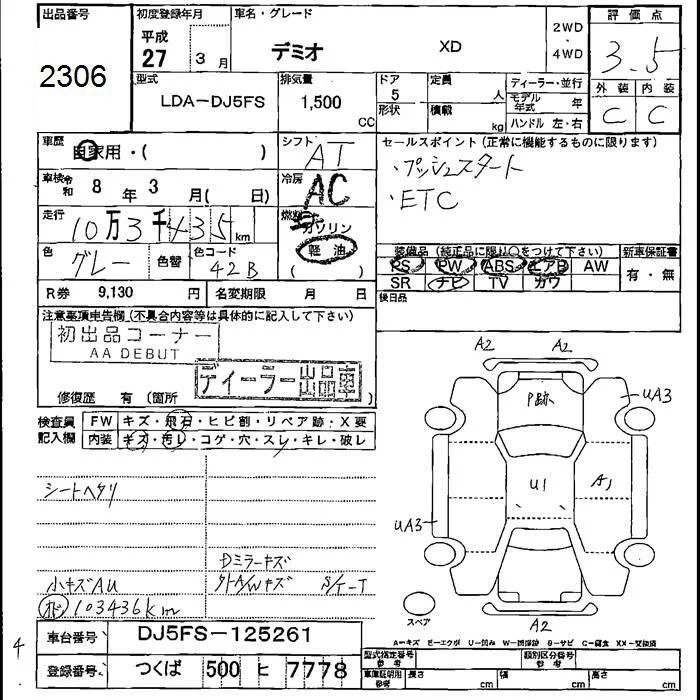 出品番号
2306
初度登録年月
平成
27 3 月
車名・グレード
デミオ XD
2WD
・
4WD
評価点
3.5
外装 内装
C C
型式
LDA-DJ5FS
排気量
1,500 CC
ドア
5
形状
定員
人
積載
kg
ディーラー・並行
モデル年式 年
ハンドル 左・右
車歴
自家用・( )
シフト
AT
車検 令和 8 年 3 月( 日)
冷房
AC
走行
10万3千435 km
燃料
ガソリン
軽油
( )
色
グレー
色替
色コード
42B
R券 9,130 円
名変期限 月 日
セールスポイント(正常に機能するものに限ります)
・プッシュスタート
・ETC
装備品(純正品に限り○をつけて下さい)
PS PW ABS エアB AW
SR ナビ TV カワ
新車保証書
有・無
後日品
注意事項申告欄(不具合内容等は具体的に記入して下さい)
初出品コーナー
AA DEBUT
ディーラー出品車
修復歴 有 (箇所 )
検査員記入欄
FW キズ・飛石・ヒビ割・リペア跡・X要
内装 キズ・汚レ・コゲ・穴・スレ・キレ・破レ
シートヘタリ
Dミラーキズ
小キズAU
外A/Wキズ S/T-T
103436km
4
車台番号 DJ5FS-125261
登録番号 つくば 500 ヒ 7778
A2 A2
P跡
UA3
U1
A1
UA3
A2
スペア
A-キズ E-エクボ U-凹み W-補修跡 S-サビ C-腐食 XX-交換済
型式指定番号
参考
類別区分番号
参考
車庫証明用
参考
長さ cm 幅 cm 高さ cm